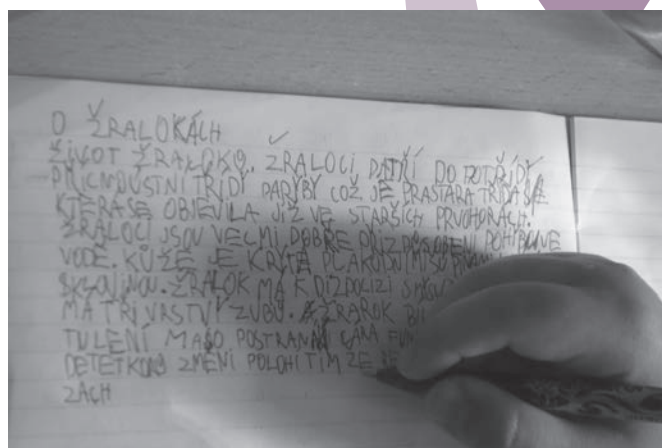 O ŽRALOKÁCH
ŽIVOT ŽRALOKŮ. ŽRALOCI PATŘÍ DO POTŘÍDY
PŘÍČNOUSTNÍ TŘÍDÍ PARYBY COŽ JE PRASTARA TŘIDA
KTERÁ SE OBJEVILA JIŽ VE STARŠÍCH PRVOHORÁCH.
ŽRALOCI JSOU VELMI DOBŘE PŘIZPŮSOBENI POHIBU VE
VODĚ. KŮŽE JE KRYTA
SKLOVINOU. ŽRALOK MA K DIZPOLIZI
MA TŘI VRSTVI ZUBŮ. ŽRAROK
TULENÍ MASO POSTRANÍ ČÁRA
DETETKOŮ ZMĚNÍ POLOHI TÍM ŽE
ZÁCH